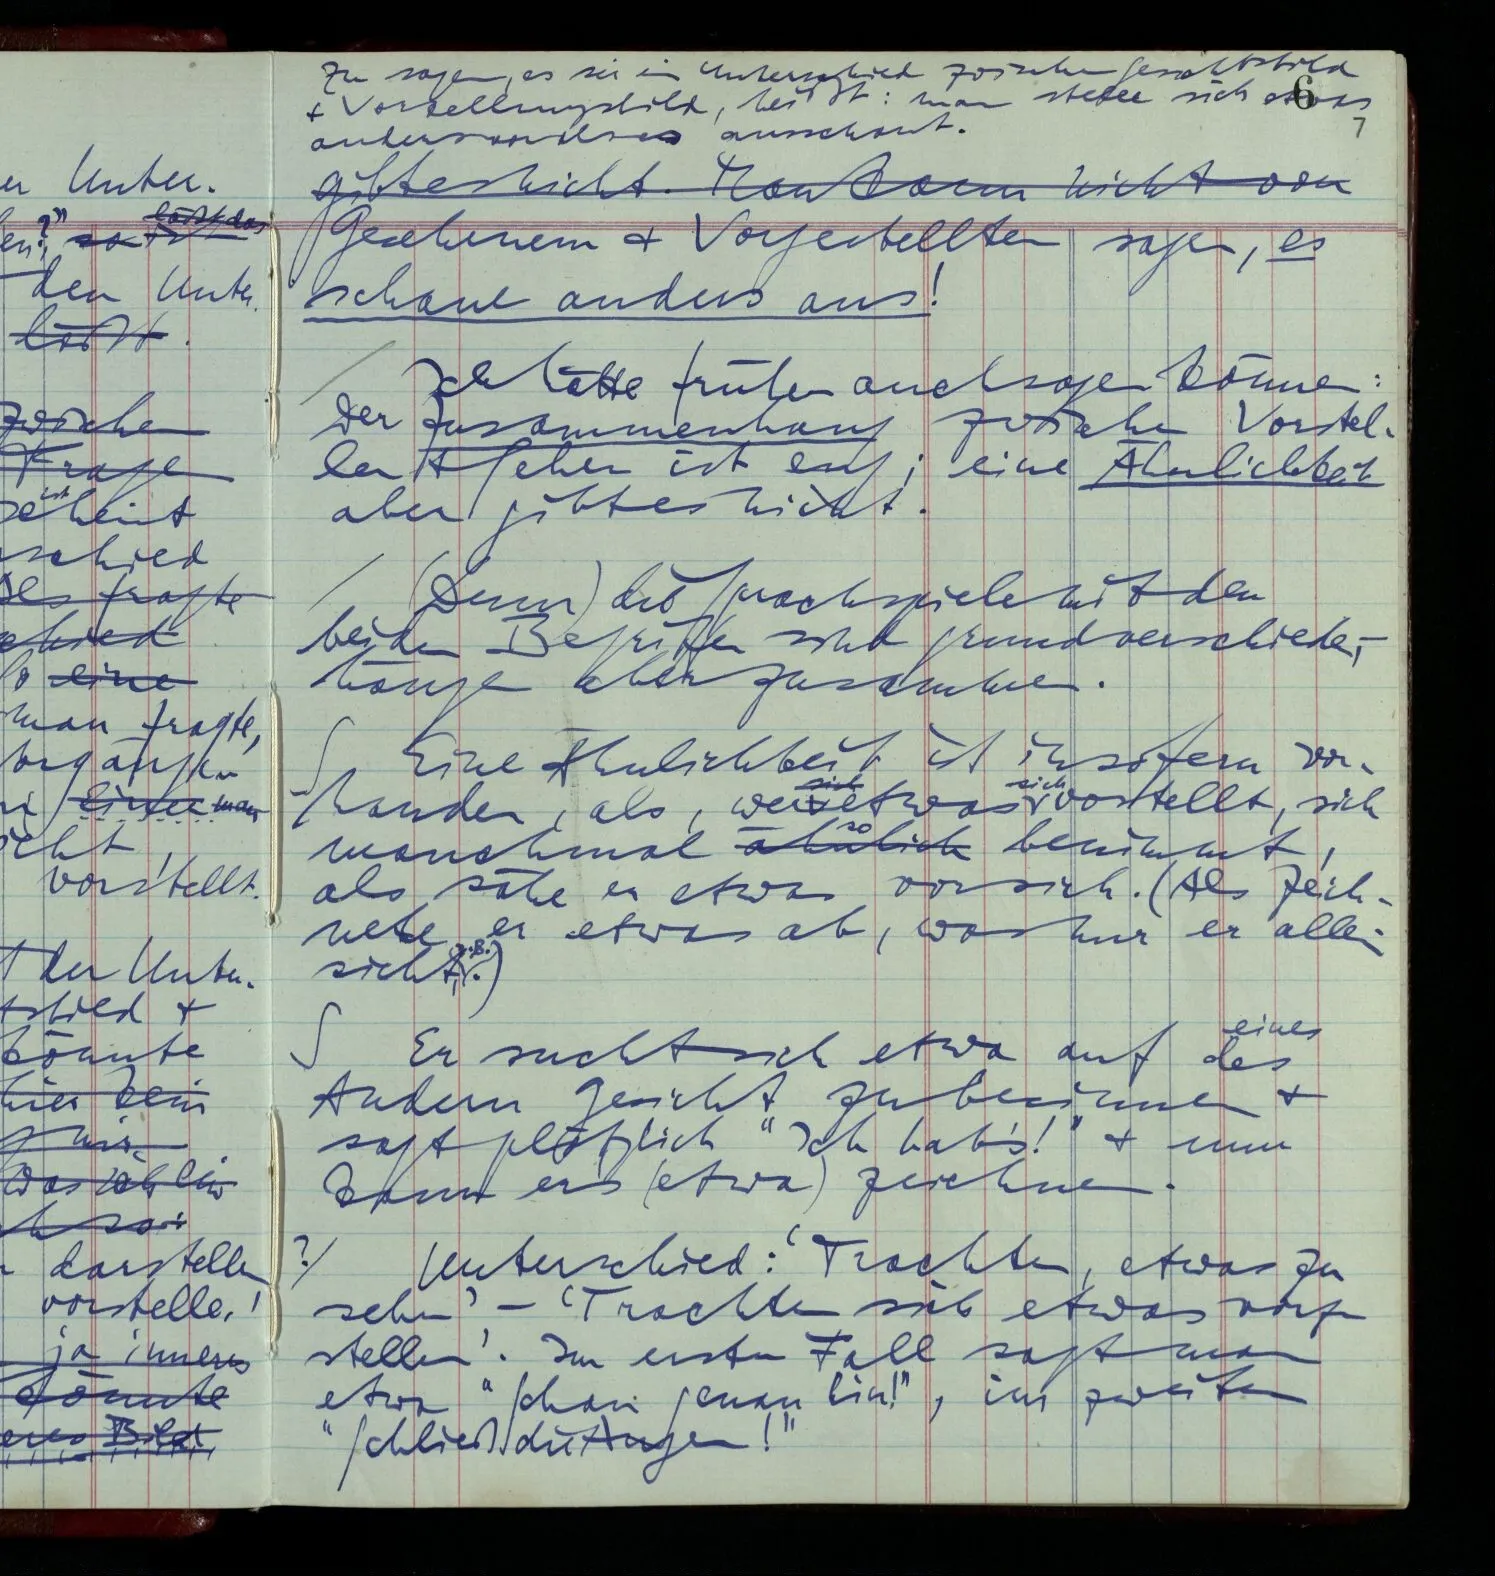 er Unter-
en?" so ist läßt das
den Unter-
läßt.
zwischen
Frage
scheint
rschied
des fragte
schied
so eine
man fragte,
Vorgänge
einer man
sieht,
vorstellt.
der Unter-
tsbild +
könnte
hier kein
h so
darstellen
vorstelle!
ja inneres
könnte
eres Bild
6
7
Zu sagen, es sei ein Unterschied zwischen Gesichtsbild
+ Vorstellungsbild, heißt: man stelle sich etwas
anders vor als es ausschaut.
gibt es nicht. Man kann nicht von
Gesehenem + Vorgestelltem sagen, es
schaue anders aus!
/ Ich hätte früher auch sagen können:
Der Zusammenhang zwischen Vorstel-
len + Sehen ist eng; eine Ähnlichkeit
aber gibt es nicht.
/ (Denn) die Sprachspiele mit den
beiden Begriffen sind grundverschieden,–
hängen aber zusammen.
∫ Eine Ähnlichkeit ist insofern vor-
handen, als, wer sich etwas sich vorstellt, sich
manchmal ähnlich so benimmt,
als sähe er etwas vor sich. (Als zeich-
nete er etwas ab, was nur er allein
sieht, z.B..)
∫ Er sucht sich etwa auf des eines
Andern Gesicht zu besinnen +
sagt plötzlich "Ich hab's!" + nun
kann er's (etwa) zeichnen.
?/ Unterschied: 'Trachten, etwas zu
sehen' – 'Trachten sich etwas vorzu
stellen'. Im ersten Fall sagt man
etwa "Schau genau hin!", im zweiten
"Schließ die Augen!"